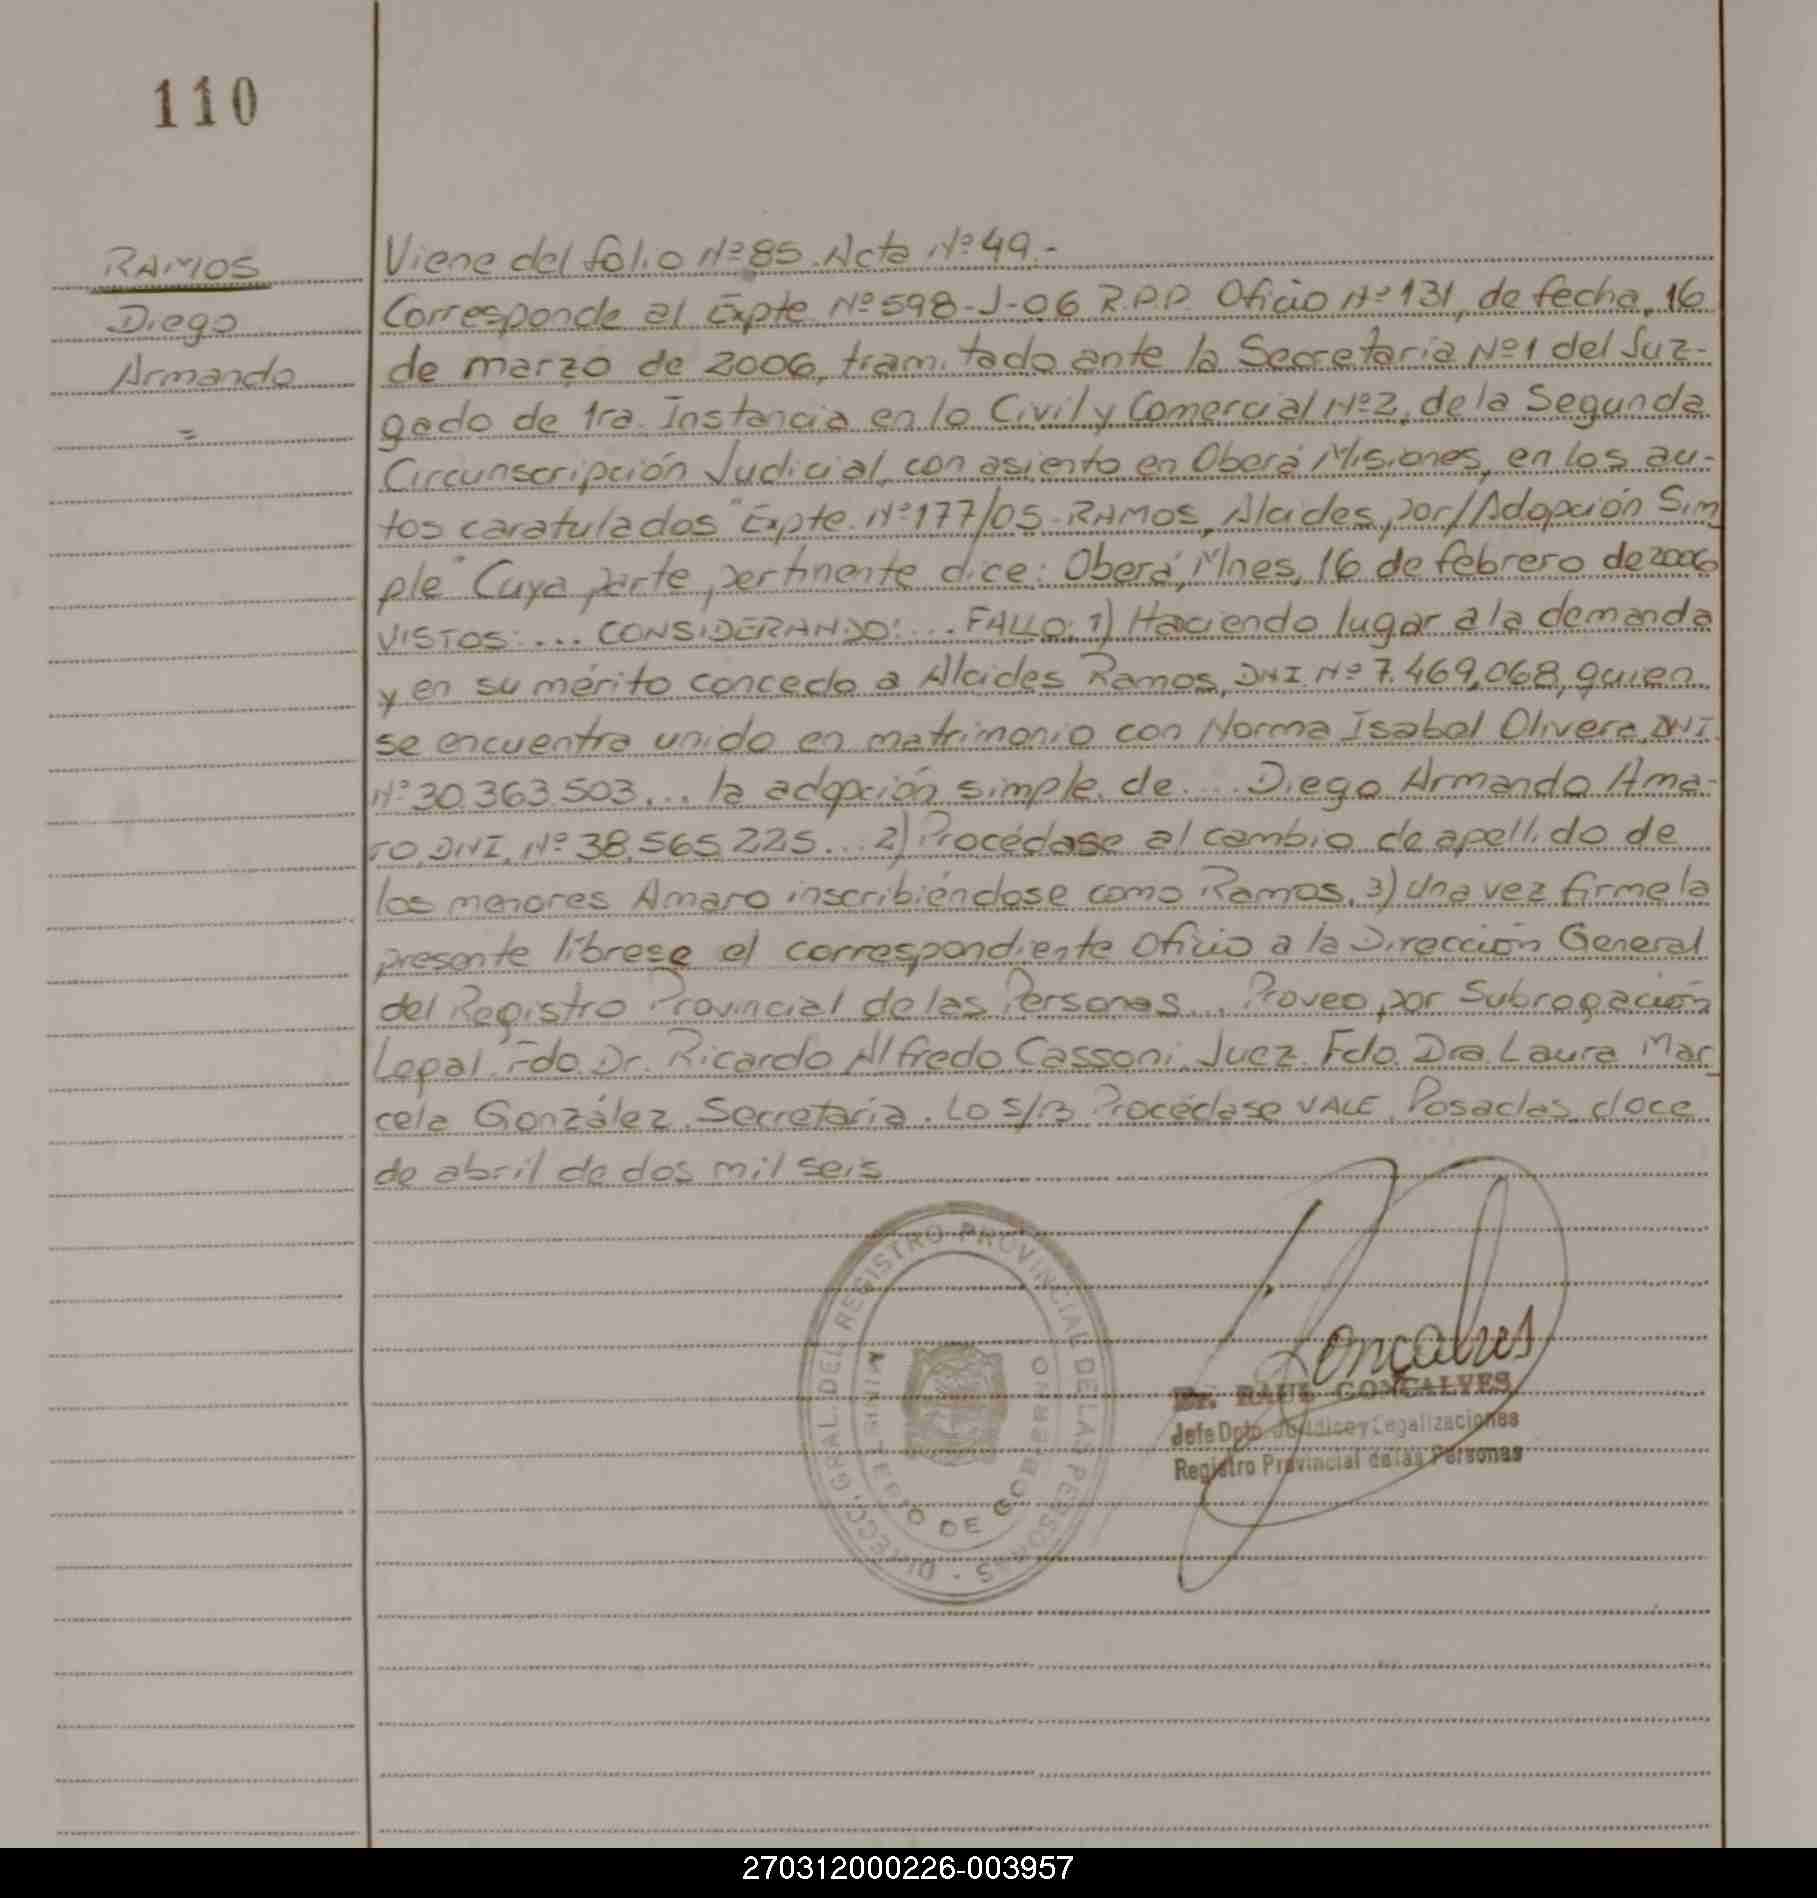 110
RAMOS
Diego
Armando
=
Viene del folio Nº 85. Acta Nº 49.-
Corresponde al Expte Nº 598-J-06 R.P.P. Oficio Nº 131, de fecha, 16
de marzo de 2006, tramitado ante la Secretaría Nº 1 del Juz-
gado de 1ra. Instancia en lo Civil y Comercial Nº 2, de la Segunda
Circunscripción Judicial, con asiento en Oberá Misiones, en los au-
tos caratulados "Expte. Nº 177/05-RAMOS, Alcides, por/Adopción Sim
ple" Cuya parte pertinente dice: Oberá, Mnes, 16 de febrero de 2006
VISTOS: ... CONSIDERANDO: ... FALLO: 1) Haciendo lugar a la demanda
y en su mérito concedo a Alcides Ramos, DNI Nº 7.469,068, quien
se encuentra unido en matrimonio con Norma Isabel Olivera, DNI
Nº 30.363.503... la adopción simple de .... Diego Armando Ama-
ro, DNI, Nº 38.565.225... 2) Procédase al cambio de apellido de
los menores Amaro inscribiéndose como Ramos. 3) Una vez firme la
presente líbrese el correspondiente oficio a la Dirección General
del Registro Provincial de las Personas... Proveo por Subrogación
Legal. Fdo. Dr. Ricardo Alfredo Cassoni. Juez. Fdo. Dra. Laura Mar
cela González. Secretaria. Lo S/B Procédase VALE. Posadas, doce
de abril de dos mil seis
DIRECC. GRAL. DEL REGISTRO PROVINCIAL DE LAS PERSONAS -
MINISTERIO DE GOBIERNO
Goncalves
Dr. RAUL GONCALVES
Jefe Dpto. Jurídico y Legalizaciones
Registro Provincial de las Personas
270312000226-003957